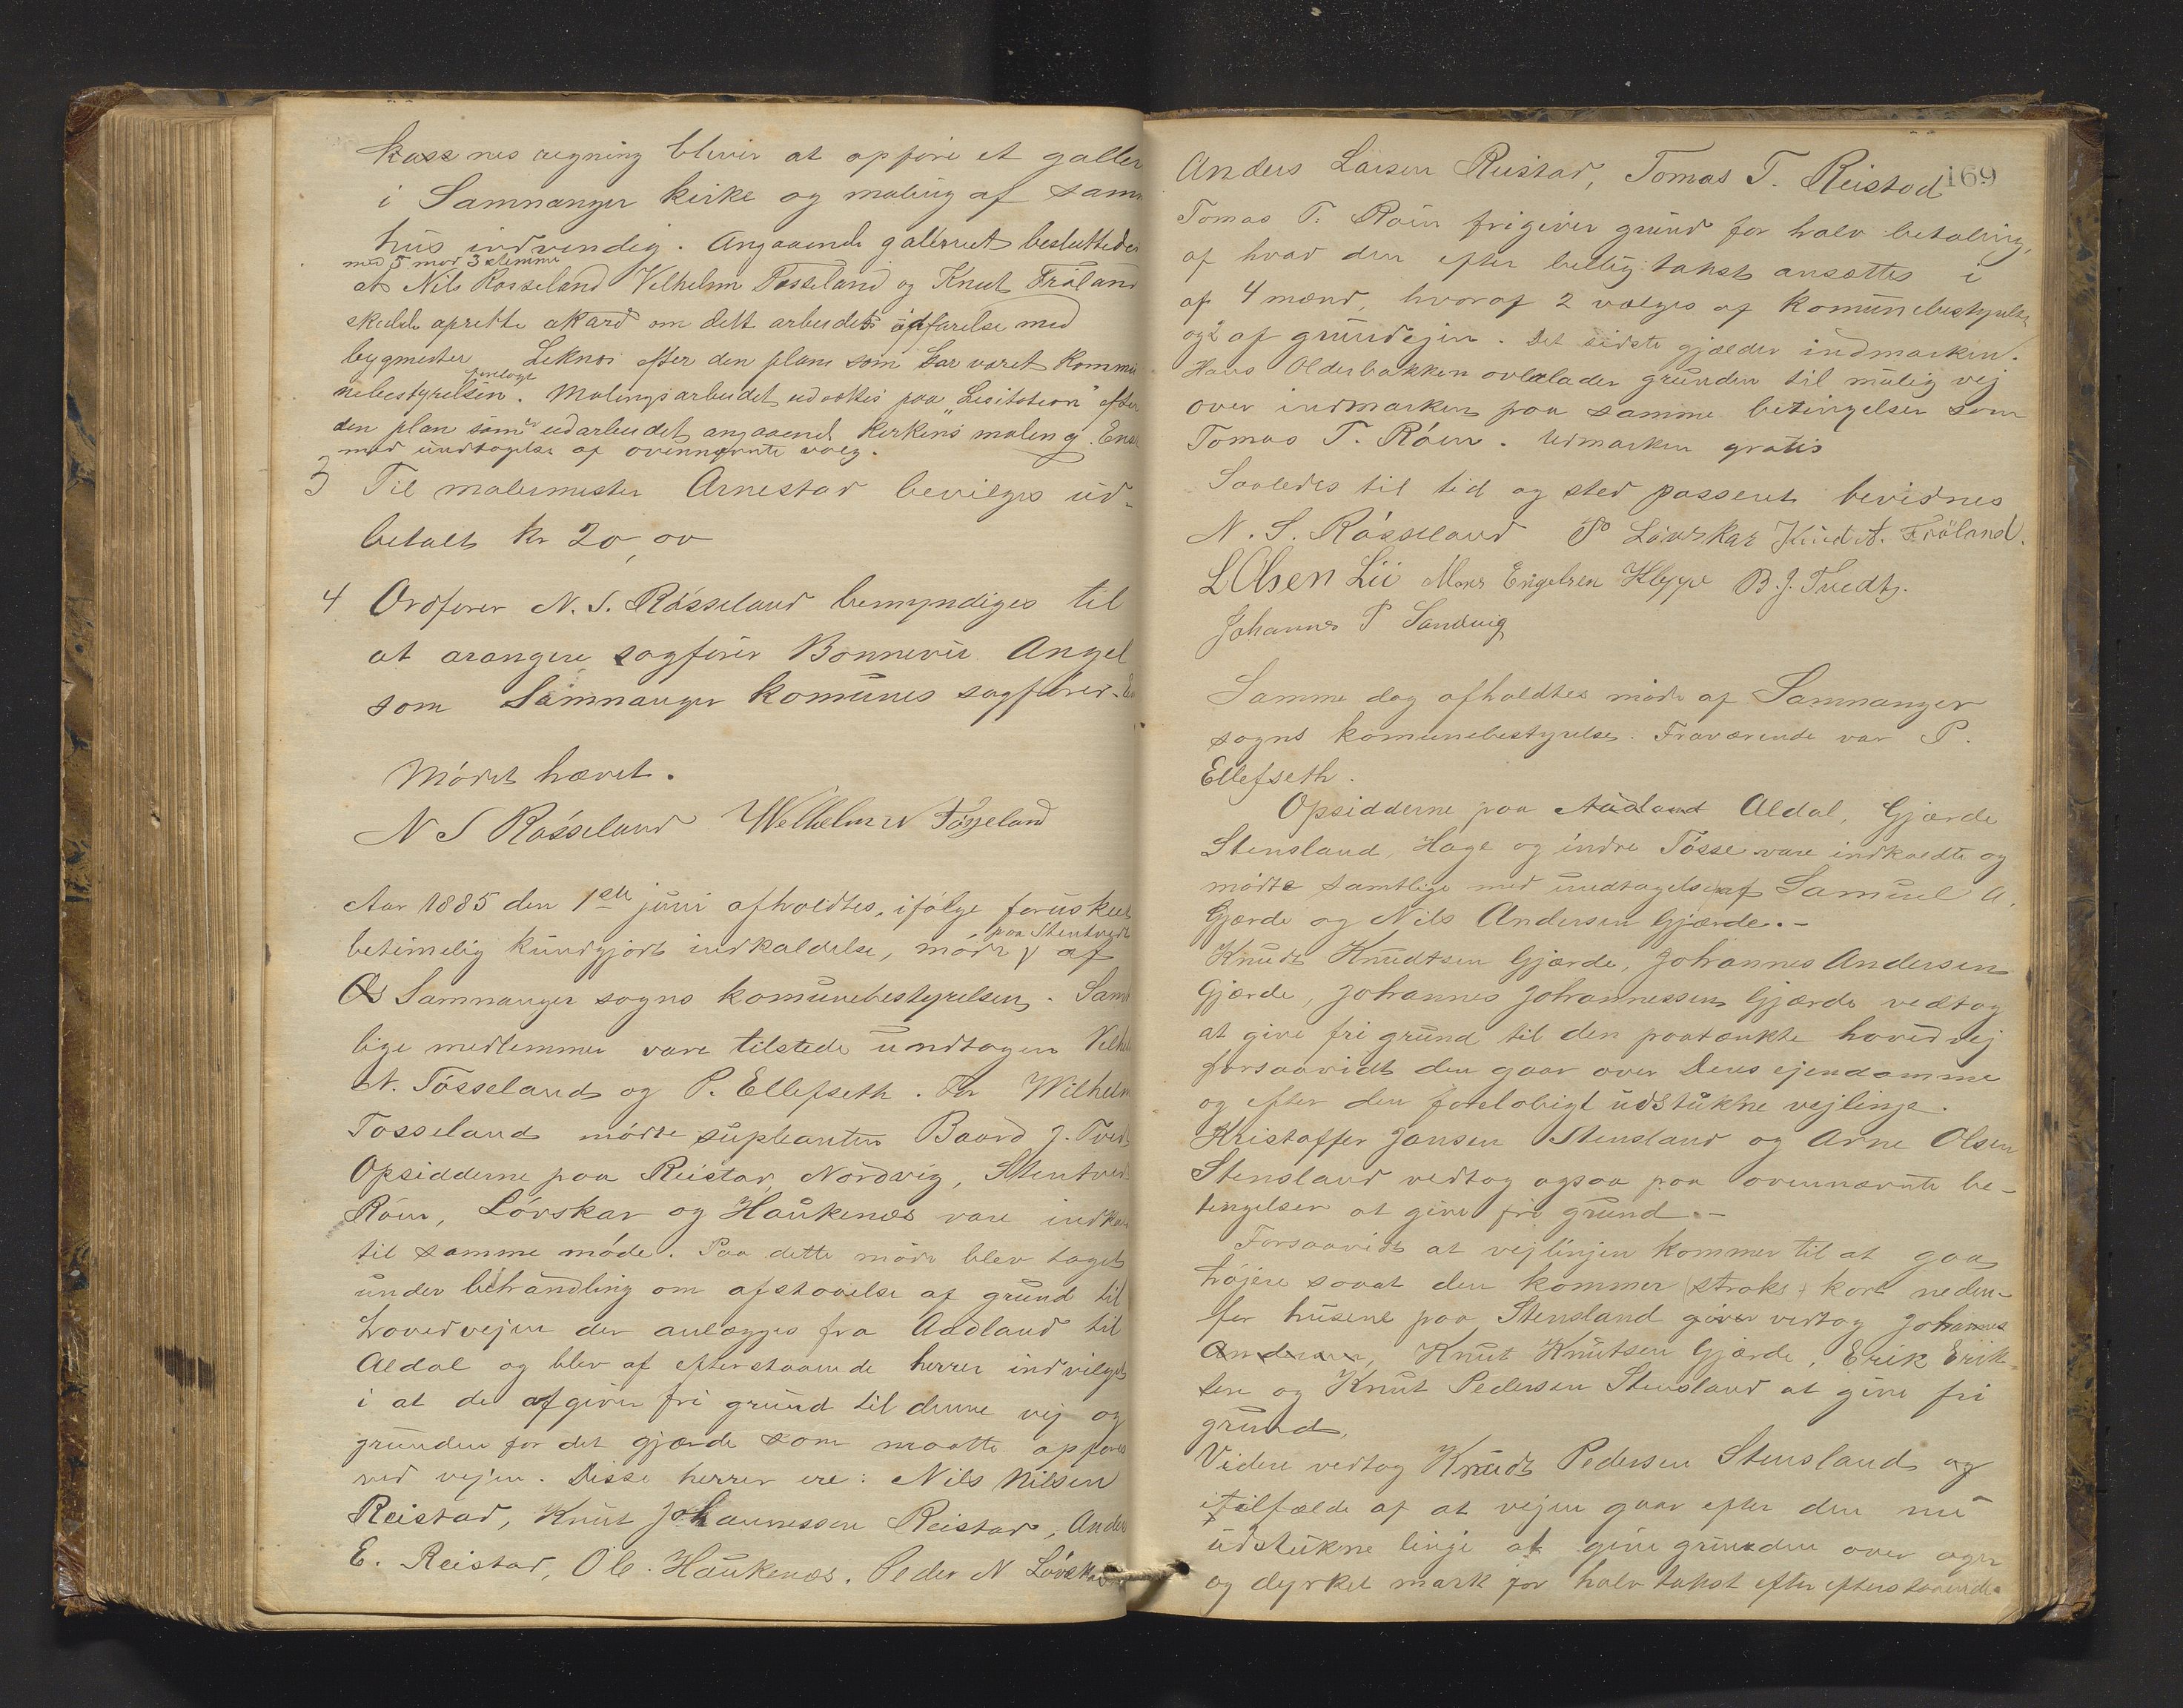 kassnes regning bliver at opføre et galler
i Samnanger kirke og maling af sam
hus indvendig. Angaaende galleriet besluttedes
med 5 mod 3 stemme
at Nils Rosseland Vilhelm Tøsseland og Knut Frøland
skulde oprette akord om dett arbeidets udførelse med
bygmester Leknes efter den plans som har været Kommu
forelagt
nebestyrelsen. Malingsarbeidet udsættes paa "Lisitation" efter
den plan som er udarbeidet angaaende Kirkens maling. Ens
med undtagelse af ovennævnte valg.
3 Til malermester Arnestad bevilges ud-
betalt kr 20,00
4 Ordfører N. S. Røsseland bemyndiges til
at arangere sagfører Bonnevie Angel
som Samnanger komunes sagfører. En
Mødet hævet.
N S Røsseland Wellhelm N Tøsseland
Aar 1885 den 1ste juni afholdtes, ifølge foruskeet
paa Stentvedt
betimelig kundgjort indkaldelse, møde af
Os Samnanger sogns komunebestyrelsen. Samt
lige medlemmer vare tilstede undtagen Vilhelm
N. Tøsseland og P. Ellefseth. For Wilhelm
Tøsseland mødte supleanten Baard J. Tvedt
Opsidderne paa Reistad, Nordvig, Stentvedt
Røen, Løvskar og Haukenæs vare indkal
til samme møde. Paa dette møde blev taget
under behandling om afstaaelse af grund til
hovedvejen der anlægges fra Aadland til
Aldal og blev af efterstaaende herrer indvilget
i at de afgiver fri grund til denne vej og
grunden for det gjærde som maatte opføres
ved vejen. Disse herrer ere: Nils Nilsen
Reistad, Knut Johannessen Reistad, Anders
E. Reistad, Ole Haukenæs, Peder N Løvskar
169
Anders Larsen Reistad, Tomas T. Reistad
Tomas T. Røen frigiver grund for halv betaling,
af hvad den efter billig takst ansættes i
af 4 mænd, hvoraf 2 vælges af komunebestyrelse
og 2 af grundejer. Det sidste gjælder indmarken.
Hans Olderbakken overlader grunden til mulig vej
over indmarken paa samme betingelser som
Tomas T. Røen. Udmarken gratis
Saaledes til tid og sted passeret bevidnes
N. S. Røsseland P Løvskar Knud A. Frøland.
L Olsen Lii Mons Engelsen Kleppe B. J. Tvedt.
Johannes P Sandvig
Samme dag afholdtes møde af Samnanger
sogns komunebestyrelse. Fraværende var P.
Ellefseth.
Opsidderne paa Aadland Aldal, Gjærde
Stensland, Hage og indre Tøsse vare indkaldte og
mødte samtlige med undtagelse af Samuel A.
Gjærde og Nils Andersen Gjærde.-
Knudt Knudtsen Gjærde, Johannes Andersen
Gjærde, Johannes Johannessen Gjærde vedtog
at give fri grund til den paatænkte hovedvej
forsaavidt den gaar over Deres ejendomme
og efter den foreløbigt udstukne vejlinge.
Kristoffer Jansen Stensland og Arne Olsen
Stensland vedtog ogsaa paa ovennævnte be-
tingelser at give fri grund.-
Forsaavidt at vejlinjen kommer til at gaa
højere saaat den kommer (straks) kort neden-
for husene paa Stensland giver vedtog Johannes
Andersen, Knut Knutsen Gjærde, Erik Erik-
sen og Knut Pedersen Stensland at give fri
grund.
Videre vedtog Knudt Pedersen Stensland og
i tilfælde af at vejen gaar efter den nu
udstukne linje at give grunden over ager
og dyrket mark for halv takst efter efterstaaende